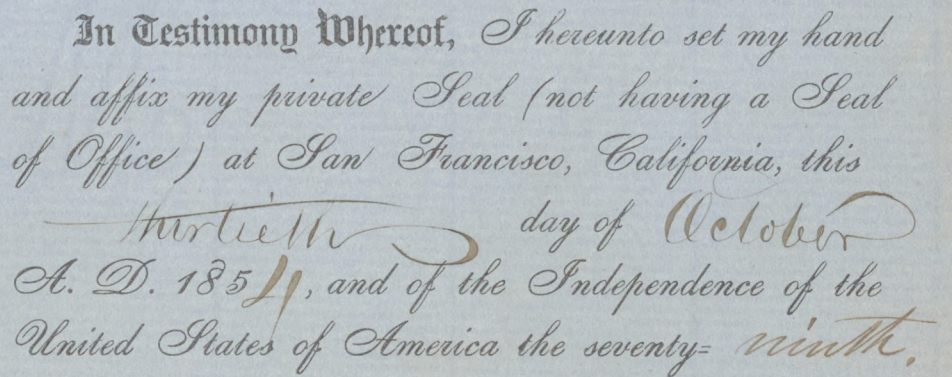 In Testimony Whereof, I hereunto set my hand
and affix my private Seal (not having a Seal
of Office) at San Francisco, California, this
thirtieth day of October
A. D. 1854, and of the Independence of the
United States of America the seventy=ninth.